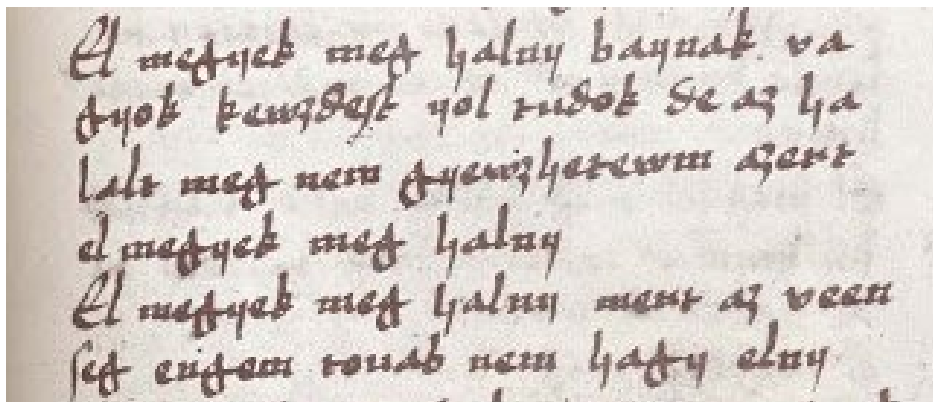 El megyek meg halny baynak va
gyok kewzdesth yol tudok de az ha
lalt meg nem gyewzhetewm azert
el megyek meg halny
El megyek meg halny mert az veen
seg engem touab nem hagy elny